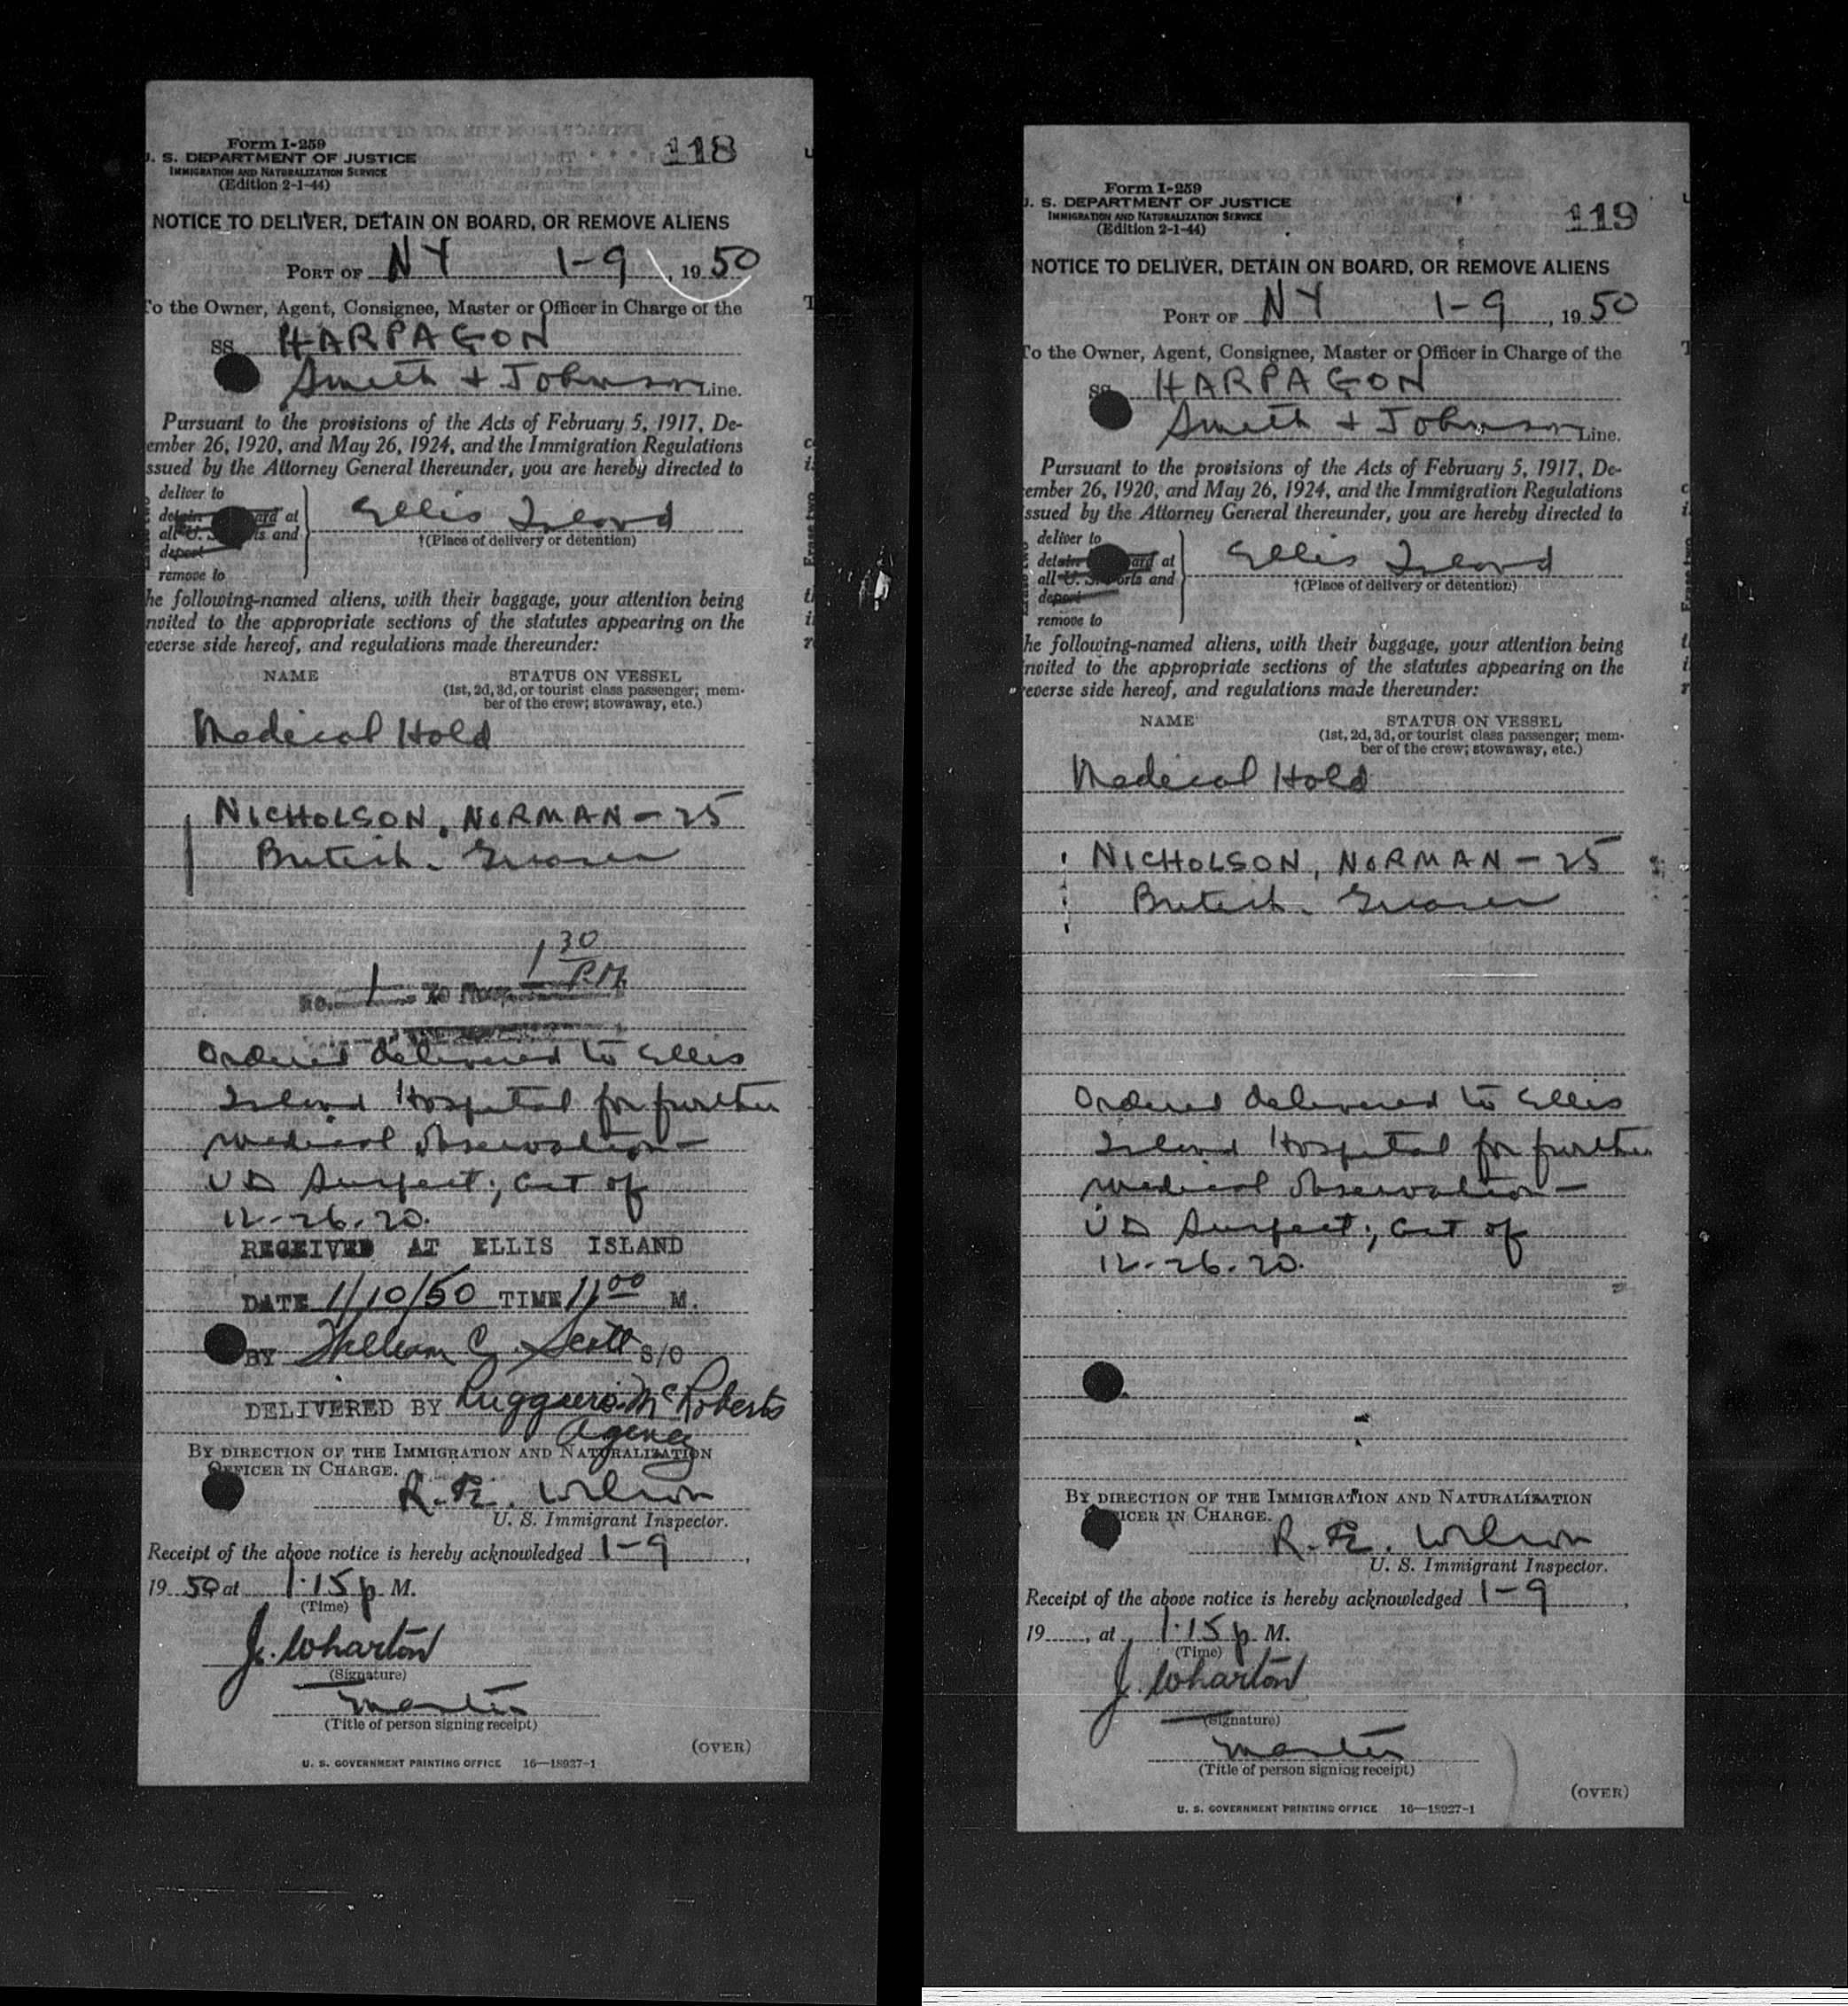 Form I-259
U. S. DEPARTMENT OF JUSTICE
IMMIGRATION AND NATURALIZATION SERVICE
(Edition 2-1-44)
118
NOTICE TO DELIVER, DETAIN ON BOARD, OR REMOVE ALIENS
PORT OF NY 1-9, 1950
To the Owner, Agent, Consignee, Master or Officer in Charge of the
SS. HARPAGON
Smith + Johnson Line.
Pursuant to the provisions of the Acts of February 5, 1917, De-
ember 26, 1920, and May 26, 1924, and the Immigration Regulations
ssued by the Attorney General thereunder, you are hereby directed to
deliver to
at
all and
remove to
Ellis Island
†(Place of delivery or detention)
he following-named aliens, with their baggage, your attention being
nvited to the appropriate sections of the statutes appearing on the
everse side hereof, and regulations made thereunder:
NAME STATUS ON VESSEL
(1st, 2d, 3d, or tourist class passenger; mem-
ber of the crew; stowaway, etc.)
Medical Hold
NICHOLSON, NORMAN - 25
British - Greaser
1 30 P.M.
No. 1
Ordered delivered to Ellis
Island Hospital for further
medical observation -
VD Suspect; Act of
12-26-20.
RECEIVED AT ELLIS ISLAND
DATE 1/10/50 TIME 11 00 M.
BY William C. Scott S/O
DELIVERED BY Ruggiero-McRoberts
Agency
BY DIRECTION OF THE IMMIGRATION AND NATURALIZATION
OFFICER IN CHARGE.
R. E. Wilson
U. S. Immigrant Inspector.
Receipt of the above notice is hereby acknowledged 1-9,
1950 at 1:15 p M.
(Time)
J. Wharton
(Signature)
Master
(Title of person signing receipt)
(OVER)
U. S. GOVERNMENT PRINTING OFFICE 16—18927-1
Form I-259
U. S. DEPARTMENT OF JUSTICE
IMMIGRATION AND NATURALIZATION SERVICE
(Edition 2-1-44)
119
NOTICE TO DELIVER, DETAIN ON BOARD, OR REMOVE ALIENS
PORT OF NY 1-9, 1950
To the Owner, Agent, Consignee, Master or Officer in Charge of the
SS. HARPAGON
Smith + Johnson Line.
Pursuant to the provisions of the Acts of February 5, 1917, De-
ember 26, 1920, and May 26, 1924, and the Immigration Regulations
ssued by the Attorney General thereunder, you are hereby directed to
deliver to
at
all and
remove to
Ellis Island
†(Place of delivery or detention)
he following-named aliens, with their baggage, your attention being
nvited to the appropriate sections of the statutes appearing on the
reverse side hereof, and regulations made thereunder:
NAME STATUS ON VESSEL
(1st, 2d, 3d, or tourist class passenger; mem-
ber of the crew; stowaway, etc.)
Medical Hold
NICHOLSON, NORMAN - 25
British - Greaser
Ordered delivered to Ellis
Island Hospital for further
medical observation -
VD Suspect; Act of
12-26-20.
BY DIRECTION OF THE IMMIGRATION AND NATURALIZATION
OFFICER IN CHARGE.
R. E. Wilson
U. S. Immigrant Inspector.
Receipt of the above notice is hereby acknowledged 1-9,
19 , at 1:15 p M.
(Time)
J. Wharton
(Signature)
Master
(Title of person signing receipt)
(OVER)
U. S. GOVERNMENT PRINTING OFFICE 16—18927-1